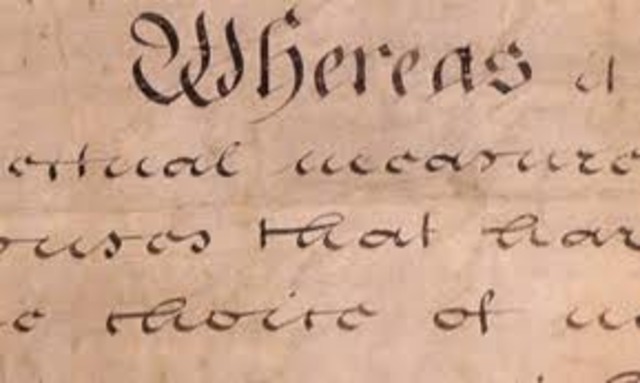 Whereas it
ectual measure
ouses that hav
e choice of